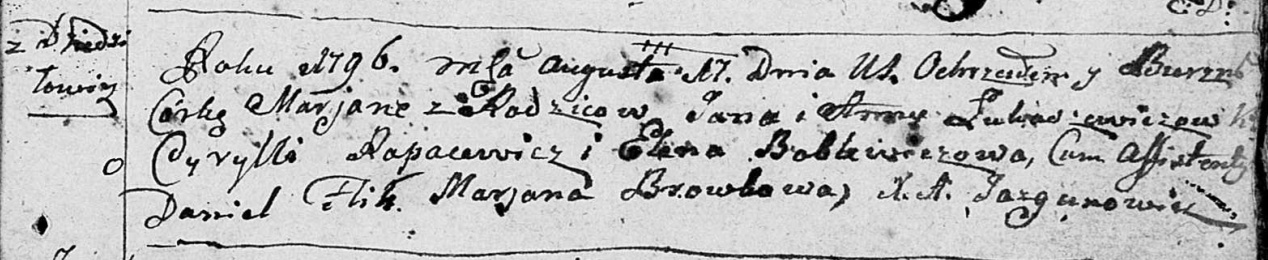 z Dziedzi
łowicz
Roku 1796. msca Augusta 17. Dnia Ut. Ochrzciłem y Bierzm
Córkę Marjanę z Rodzicow Jana i Anny Łukaszewiczow
Cyrylli Rapacewicz i Elena Bobkiewiczowa, Cum Assistenty
Daniel Flik. Marjana Browkowa, X. A. Jazgunowicz